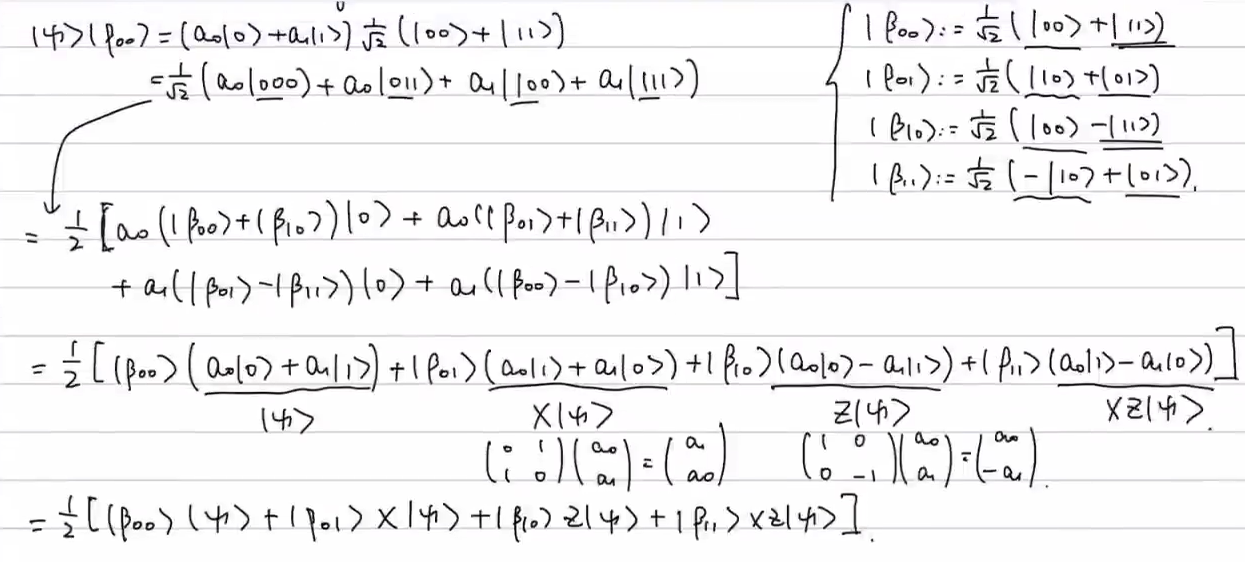 |ψ>|β₀₀> = (a₀|0> + a₁|1>) 1/√2 (|00> + |11>)
= 1/√2 (a₀|000> + a₀|011> + a₁|100> + a₁|111>)
|β₀₀> := 1/√2 (|00> + |11>)
|β₀₁> := 1/√2 (|10> + |01>)
|β₁₀> := 1/√2 (|00> - |11>)
|β₁₁> := 1/√2 (-|10> + |01>).
= 1/2 [a₀(|β₀₀> + |β₁₀>)|0> + a₀(|β₀₁> + |β₁₁>)|1>
+ a₁(|β₀₁> - |β₁₁>)|0> + a₁(|β₀₀> - |β₁₀>)|1>]
= 1/2 [|β₀₀>(a₀|0> + a₁|1>) + |β₀₁>(a₀|1> + a₁|0>) + |β₁₀>(a₀|0> - a₁|1>) + |β₁₁>(a₀|1> - a₁|0>)]
|ψ> X|ψ> Z|ψ> XZ|ψ>.
(0 1; 1 0)(a₀; a₁) = (a₁; a₀) (1 0; 0 -1)(a₀; a₁) = (a₀; -a₁).
= 1/2 [|β₀₀>|ψ> + |β₀₁> X|ψ> + |β₁₀> Z|ψ> + |β₁₁> XZ|ψ>].